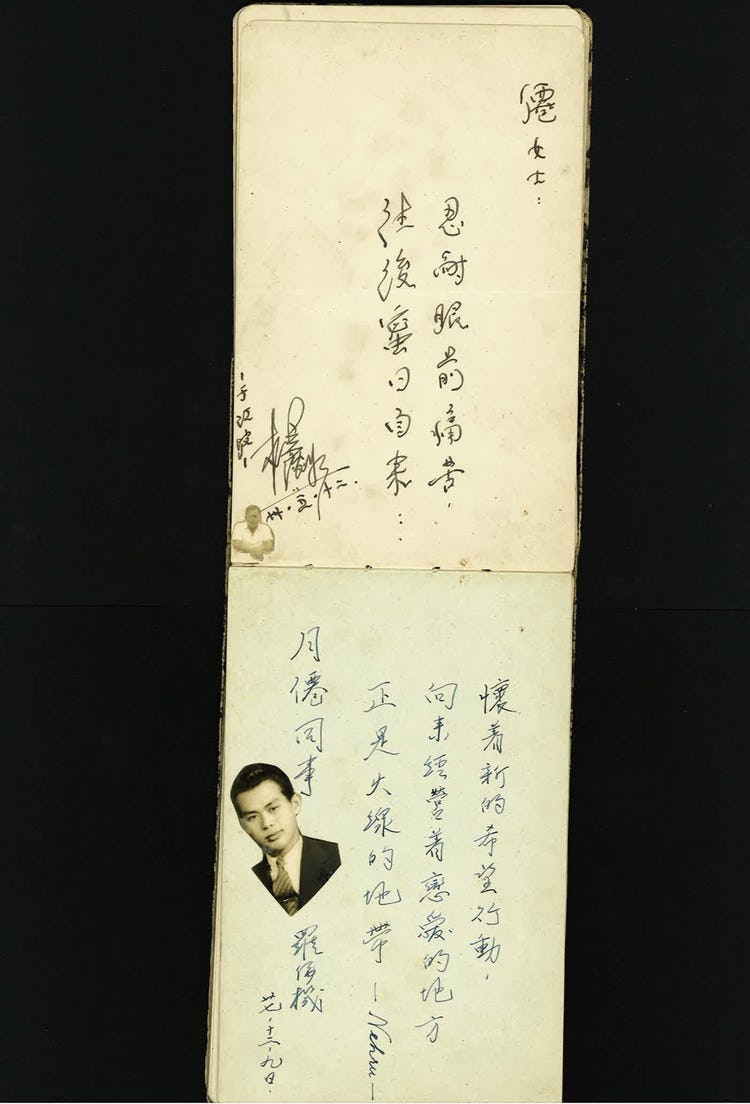 僊女士:
忍耐眼前痛苦,
往後蜜日自來…
卅·五·十二.
懷着新的希望行動,
向来經營着戀愛的地方
正是火線的地帶—Nehru—
月僊同事
羅 機
廿七·十二·九日.